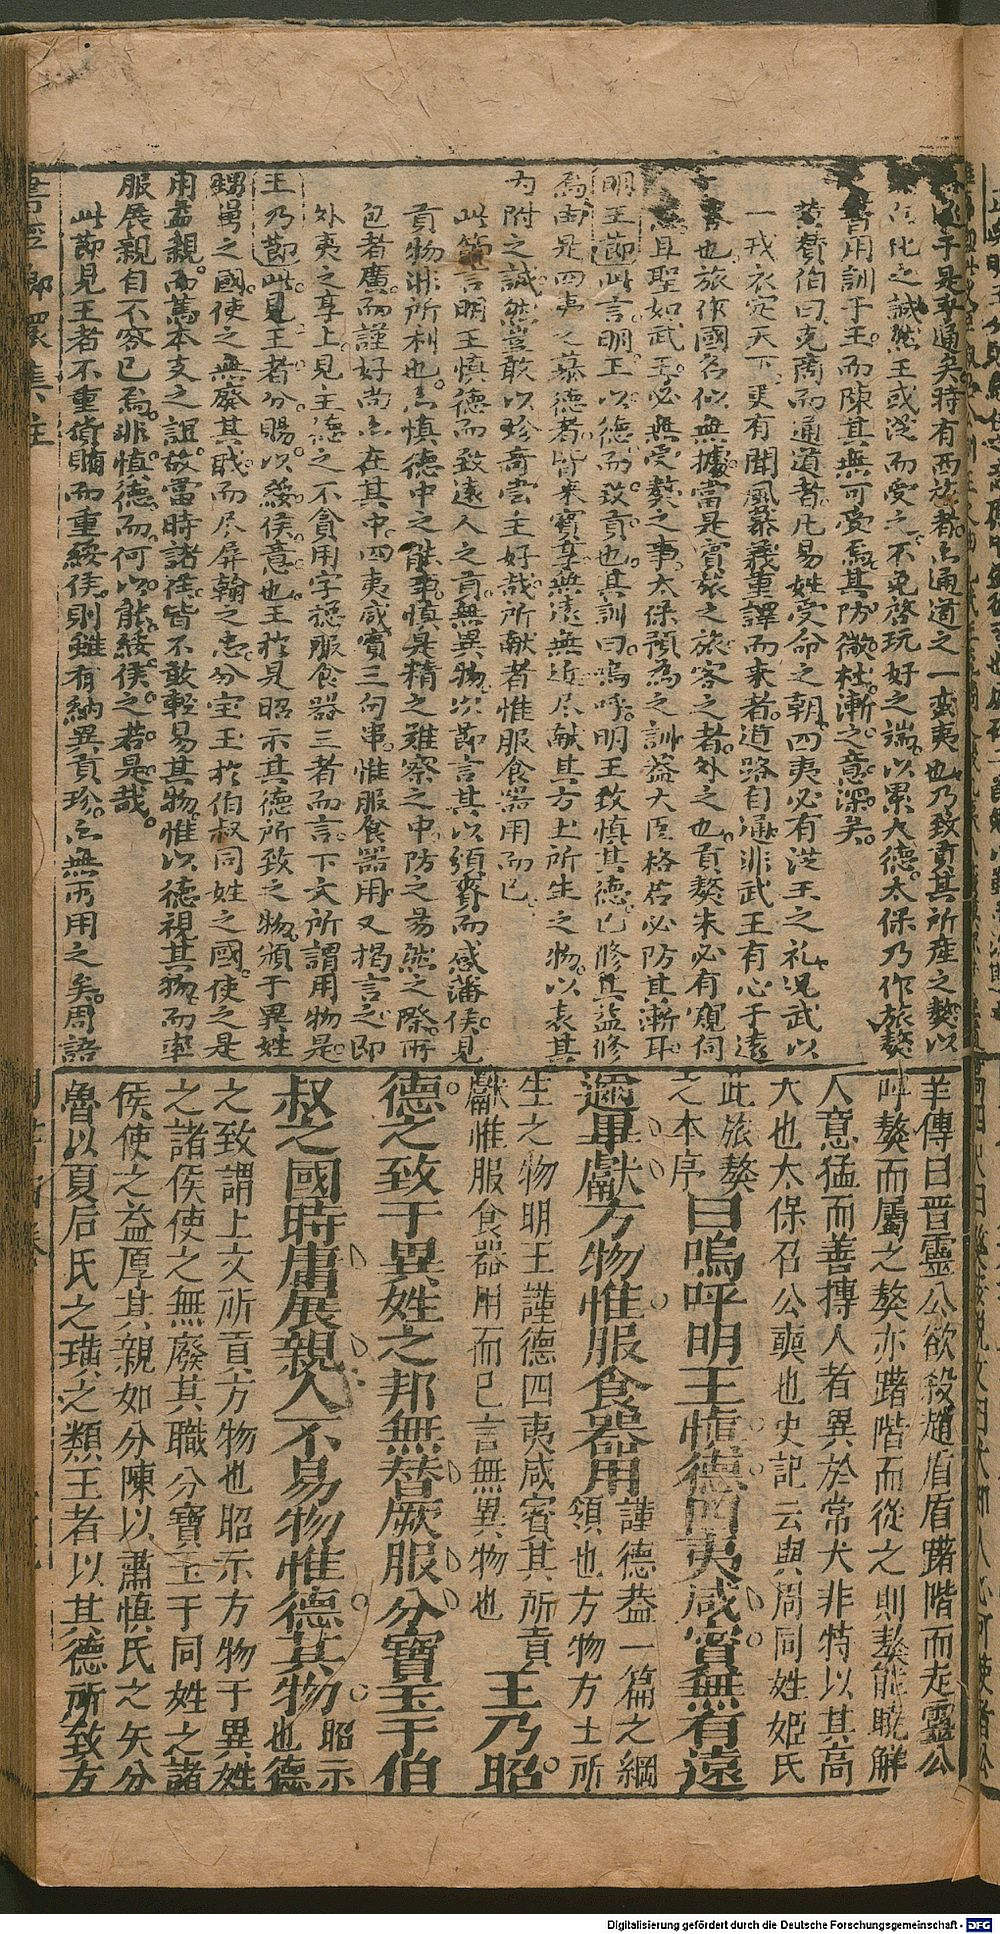 八于是乎通矣時有西旅者亦通道之一蠻夷也乃致貢其所産之獒以
化之誠然王或從而受之不免啓玩好之端以累大德太保乃作旅獒
用訓于王而陳其無可受焉其防微杜漸之意深矣
費伯曰克商而通道者凡易姓受命之朝四夷必有従王之礼况武以
一戎衣定天下更有聞風慕義重譯而来者道路自通非武王有心于遠
也旅作國名似無據當是賓旅之旅客之者外之也貢獒未必有窺伺
且聖如武王必無受獒之事太保預為之訓盖大臣格君必防其漸耳
明王節此言明王以德而致貢也其訓曰嗚呼明王致慎其德已修其益修
為由是四夷之慕德者皆来賓尊無遠無近尽献其方土所生之物以表其
內附之誠然豈敢以珍奇尝主好哉所献者惟服食器用而已
此節言明王慎德而致遠人之貢無異物次節言其以頒賚而感藩侯見
貢物非所利也亦慎德中之能事慎是精之難察之中防之昜然之際所
包者廣而謹好尚亦在其中四夷咸賓三句串惟服食器用又揭言之即
外夷之享上見主德之不貪用字摠服食器三者而言下文所謂用物是
王乃節此見王者分賜以綏侯意也王於是昭示其德所致之物頒于異姓
甥舅之國使之無廢其职而尽屏翰之忠分宝玉於伯叔同姓之國使之是
用益親而篤本支之誼故當時諸侯皆不敢輕易其物惟以德視其物而率
服展親自不容已焉非慎德而何以能綏侯之若是哉
此節見王者不重貨賄而重綏侯則雖有納異貢珍亦無所用之矣周語
羊傳曰晋靈公欲殺趙盾盾躇階而走靈公
呼獒而屬之獒亦躇階而從之則獒能曉解
人意猛而善搏人者異於常犬非特以其高
大也太保召公奭也史記云與周同姓姬氏
此旅獒
之本序
曰嗚呼明王慎德四夷咸賓無有遠
邇畢獻方物惟服食器用
謹德蓋一篇之綱
領也方物方土所
生之物明王謹德四夷咸賓其所貢
獻惟服食器用而已言無異物也
王乃昭
德之致于異姓之邦無替厥服分寶玉于伯
叔之國時庸展親人不易物惟德其物
昭示
也德
之致謂上文所貢方物也昭示方物于異姓
之諸侯使之無廢其職分寶玉于同姓之諸
侯使之益厚其親如分陳以肅慎氏之矢分
魯以夏后氏之璜之類王者以其德所致方
書經
集註
Digitalisierung gefördert durch die Deutsche Forschungsgemeinschaft - DFG